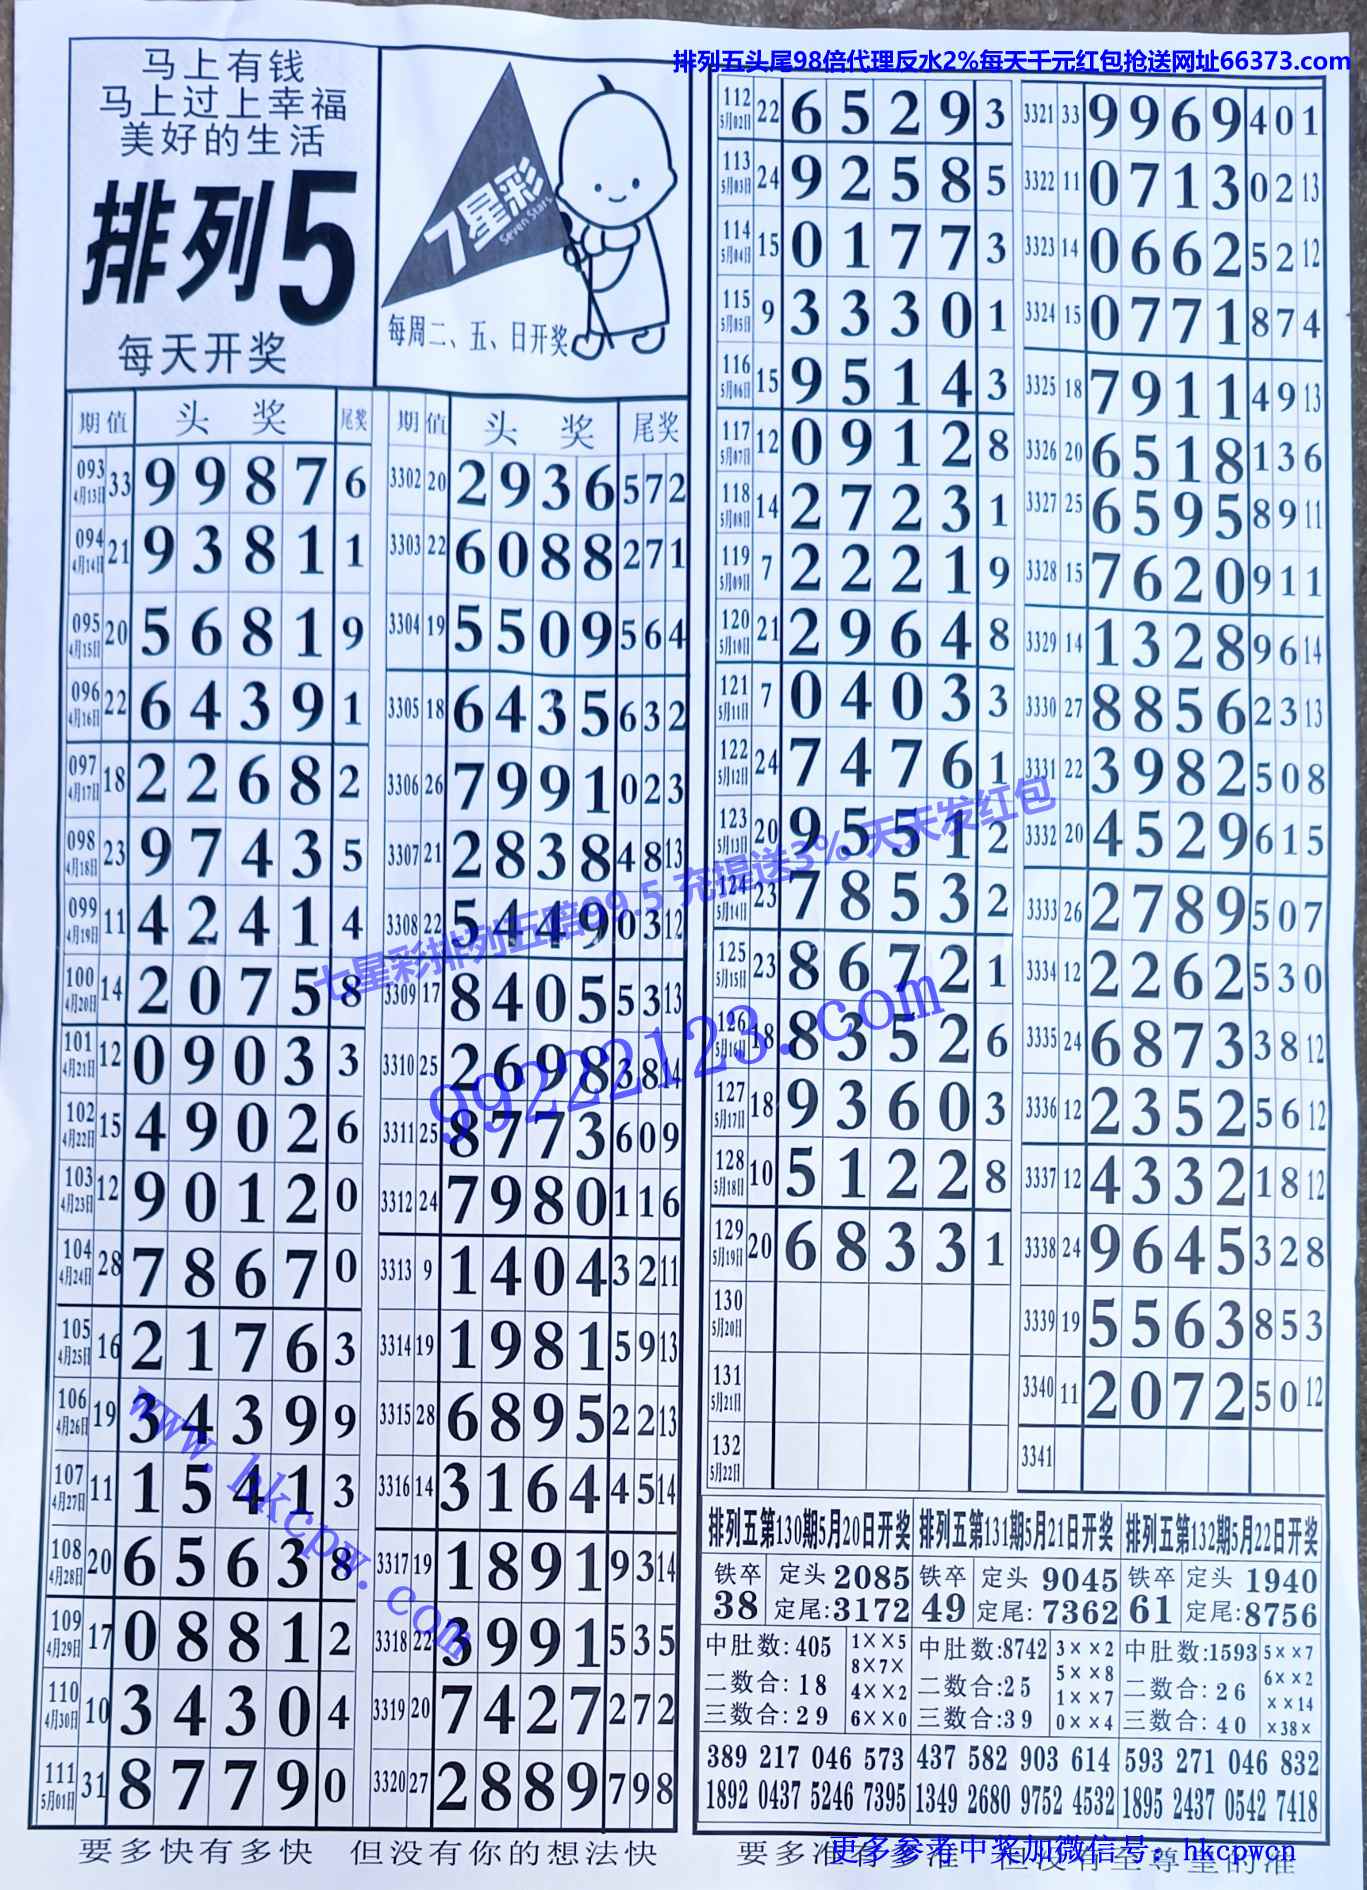 排列五头尾98倍代理反水2%每天千元红包抢送网址66373.com
马上有钱
马上过上幸福
美好的生活
排列5
每天开奖
7星彩
Seven Stars
每周二、五、日开奖
期 值 头 奖 尾奖
093 4月13日 33 9 9 8 7 6
094 4月14日 21 9 3 8 1 1
095 4月15日 20 5 6 8 1 9
096 4月16日 22 6 4 3 9 1
097 4月17日 18 2 2 6 8 2
098 4月18日 23 9 7 4 3 5
099 4月19日 11 4 2 4 1 4
100 4月20日 14 2 0 7 5 8
101 4月21日 12 0 9 0 3 3
102 4月22日 15 4 9 0 2 6
103 4月23日 12 9 0 1 2 0
104 4月24日 28 7 8 6 7 0
105 4月25日 16 2 1 7 6 3
106 4月26日 19 3 4 3 9 9
107 4月27日 11 1 5 4 1 3
108 4月28日 20 6 5 6 3 8
109 4月29日 17 0 8 8 1 2
110 4月30日 10 3 4 3 0 4
111 5月01日 31 8 7 7 9 0
期 值 头 奖 尾奖
3302 20 2 9 3 6 5 7 2
3303 22 6 0 8 8 2 7 1
3304 19 5 5 0 9 5 6 4
3305 18 6 4 3 5 6 3 2
3306 26 7 9 9 1 0 2 3
3307 21 2 8 3 8 4 8 13
3308 22 5 4 4 9 0 3 12
3309 17 8 4 0 5 5 3 13
3310 25 2 6 9 8 3 8 14
3311 25 8 7 7 3 6 0 9
3312 24 7 9 8 0 1 1 6
3313 9 1 4 0 4 3 2 11
3314 19 1 9 8 1 5 9 13
3315 28 6 8 9 5 2 2 13
3316 14 3 1 6 4 4 5 14
3317 19 1 8 9 1 9 3 14
3318 22 3 9 9 1 5 3 5
3319 20 7 4 2 7 2 7 2
3320 27 2 8 8 9 7 9 8
112 5月02日 22 6 5 2 9 3
113 5月03日 24 9 2 5 8 5
114 5月04日 15 0 1 7 7 3
115 5月05日 9 3 3 3 0 1
116 5月06日 15 9 5 1 4 3
117 5月07日 12 0 9 1 2 8
118 5月08日 14 2 7 2 3 1
119 5月09日 7 2 2 2 1 9
120 5月10日 21 2 9 6 4 8
121 5月11日 7 0 4 0 3 3
122 5月12日 24 7 4 7 6 1
123 5月13日 20 9 5 5 1 2
124 5月14日 23 7 8 5 3 2
125 5月15日 23 8 6 7 2 1
126 5月16日 18 8 3 5 2 6
127 5月17日 18 9 3 6 0 3
128 5月18日 10 5 1 2 2 8
129 5月19日 20 6 8 3 3 1
130 5月20日
131 5月21日
132 5月22日
3321 33 9 9 6 9 4 0 1
3322 11 0 7 1 3 0 2 13
3323 14 0 6 6 2 5 2 12
3324 15 0 7 7 1 8 7 4
3325 18 7 9 1 1 4 9 13
3326 20 6 5 1 8 1 3 6
3327 25 6 5 9 5 8 9 11
3328 15 7 6 2 0 9 1 1
3329 14 1 3 2 8 9 6 14
3330 27 8 8 5 6 2 3 13
3331 22 3 9 8 2 5 0 8
3332 20 4 5 2 9 6 1 5
3333 26 2 7 8 9 5 0 7
3334 12 2 2 6 2 5 3 0
3335 24 6 8 7 3 3 8 12
3336 12 2 3 5 2 5 6 12
3337 12 4 3 3 2 1 8 12
3338 24 9 6 4 5 3 2 8
3339 19 5 5 6 3 8 5 3
3340 11 2 0 7 2 5 0 12
3341
七星彩排列五赔99.5 充提送3% 天天发红包
99222123.com
www.hkcpw.com
排列五第130期5月20日开奖
铁卒 38 定头 2085
定尾:3172
中肚数:405
二数合:18
三数合:29
1××5
8×7×
4××2
6××0
389 217 046 573
1892 0437 5246 7395
排列五第131期5月21日开奖
铁卒 49 定头 9045
定尾:7362
中肚数:8742
二数合:25
三数合:39
3××2
5××8
1××7
0××4
437 582 903 614
1349 2680 9752 4532
排列五第132期5月22日开奖
铁卒 61 定头 1940
定尾:8756
中肚数:1593
二数合:26
三数合:40
5××7
6××2
××14
×38×
593 271 046 832
1895 2437 0542 7418
要多快有多快 但没有你的想法快
要多准有多准 但没有至尊星的准
更多参考中奖加微信号：hkcpwcn